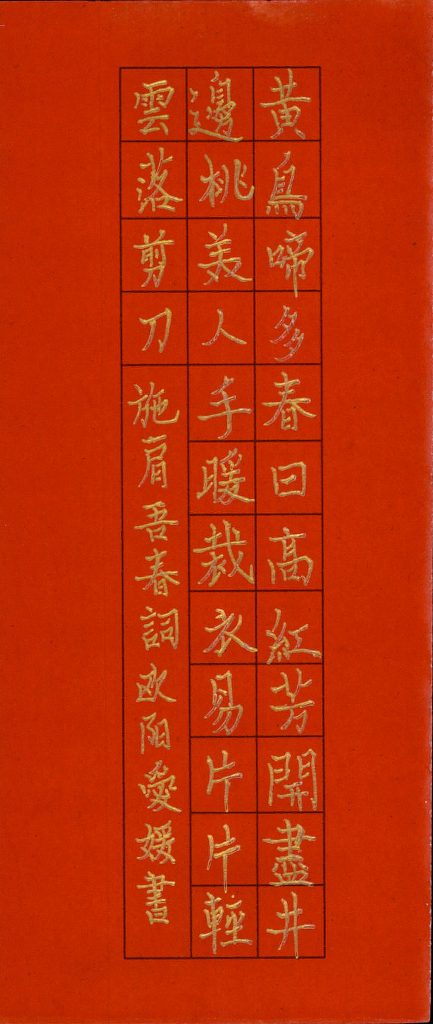 黃鳥啼多春日高紅芳開盡井
邊桃美人手暖裁衣易片片輕
雲落剪刀施肩吾春詞欧阳愛媛書